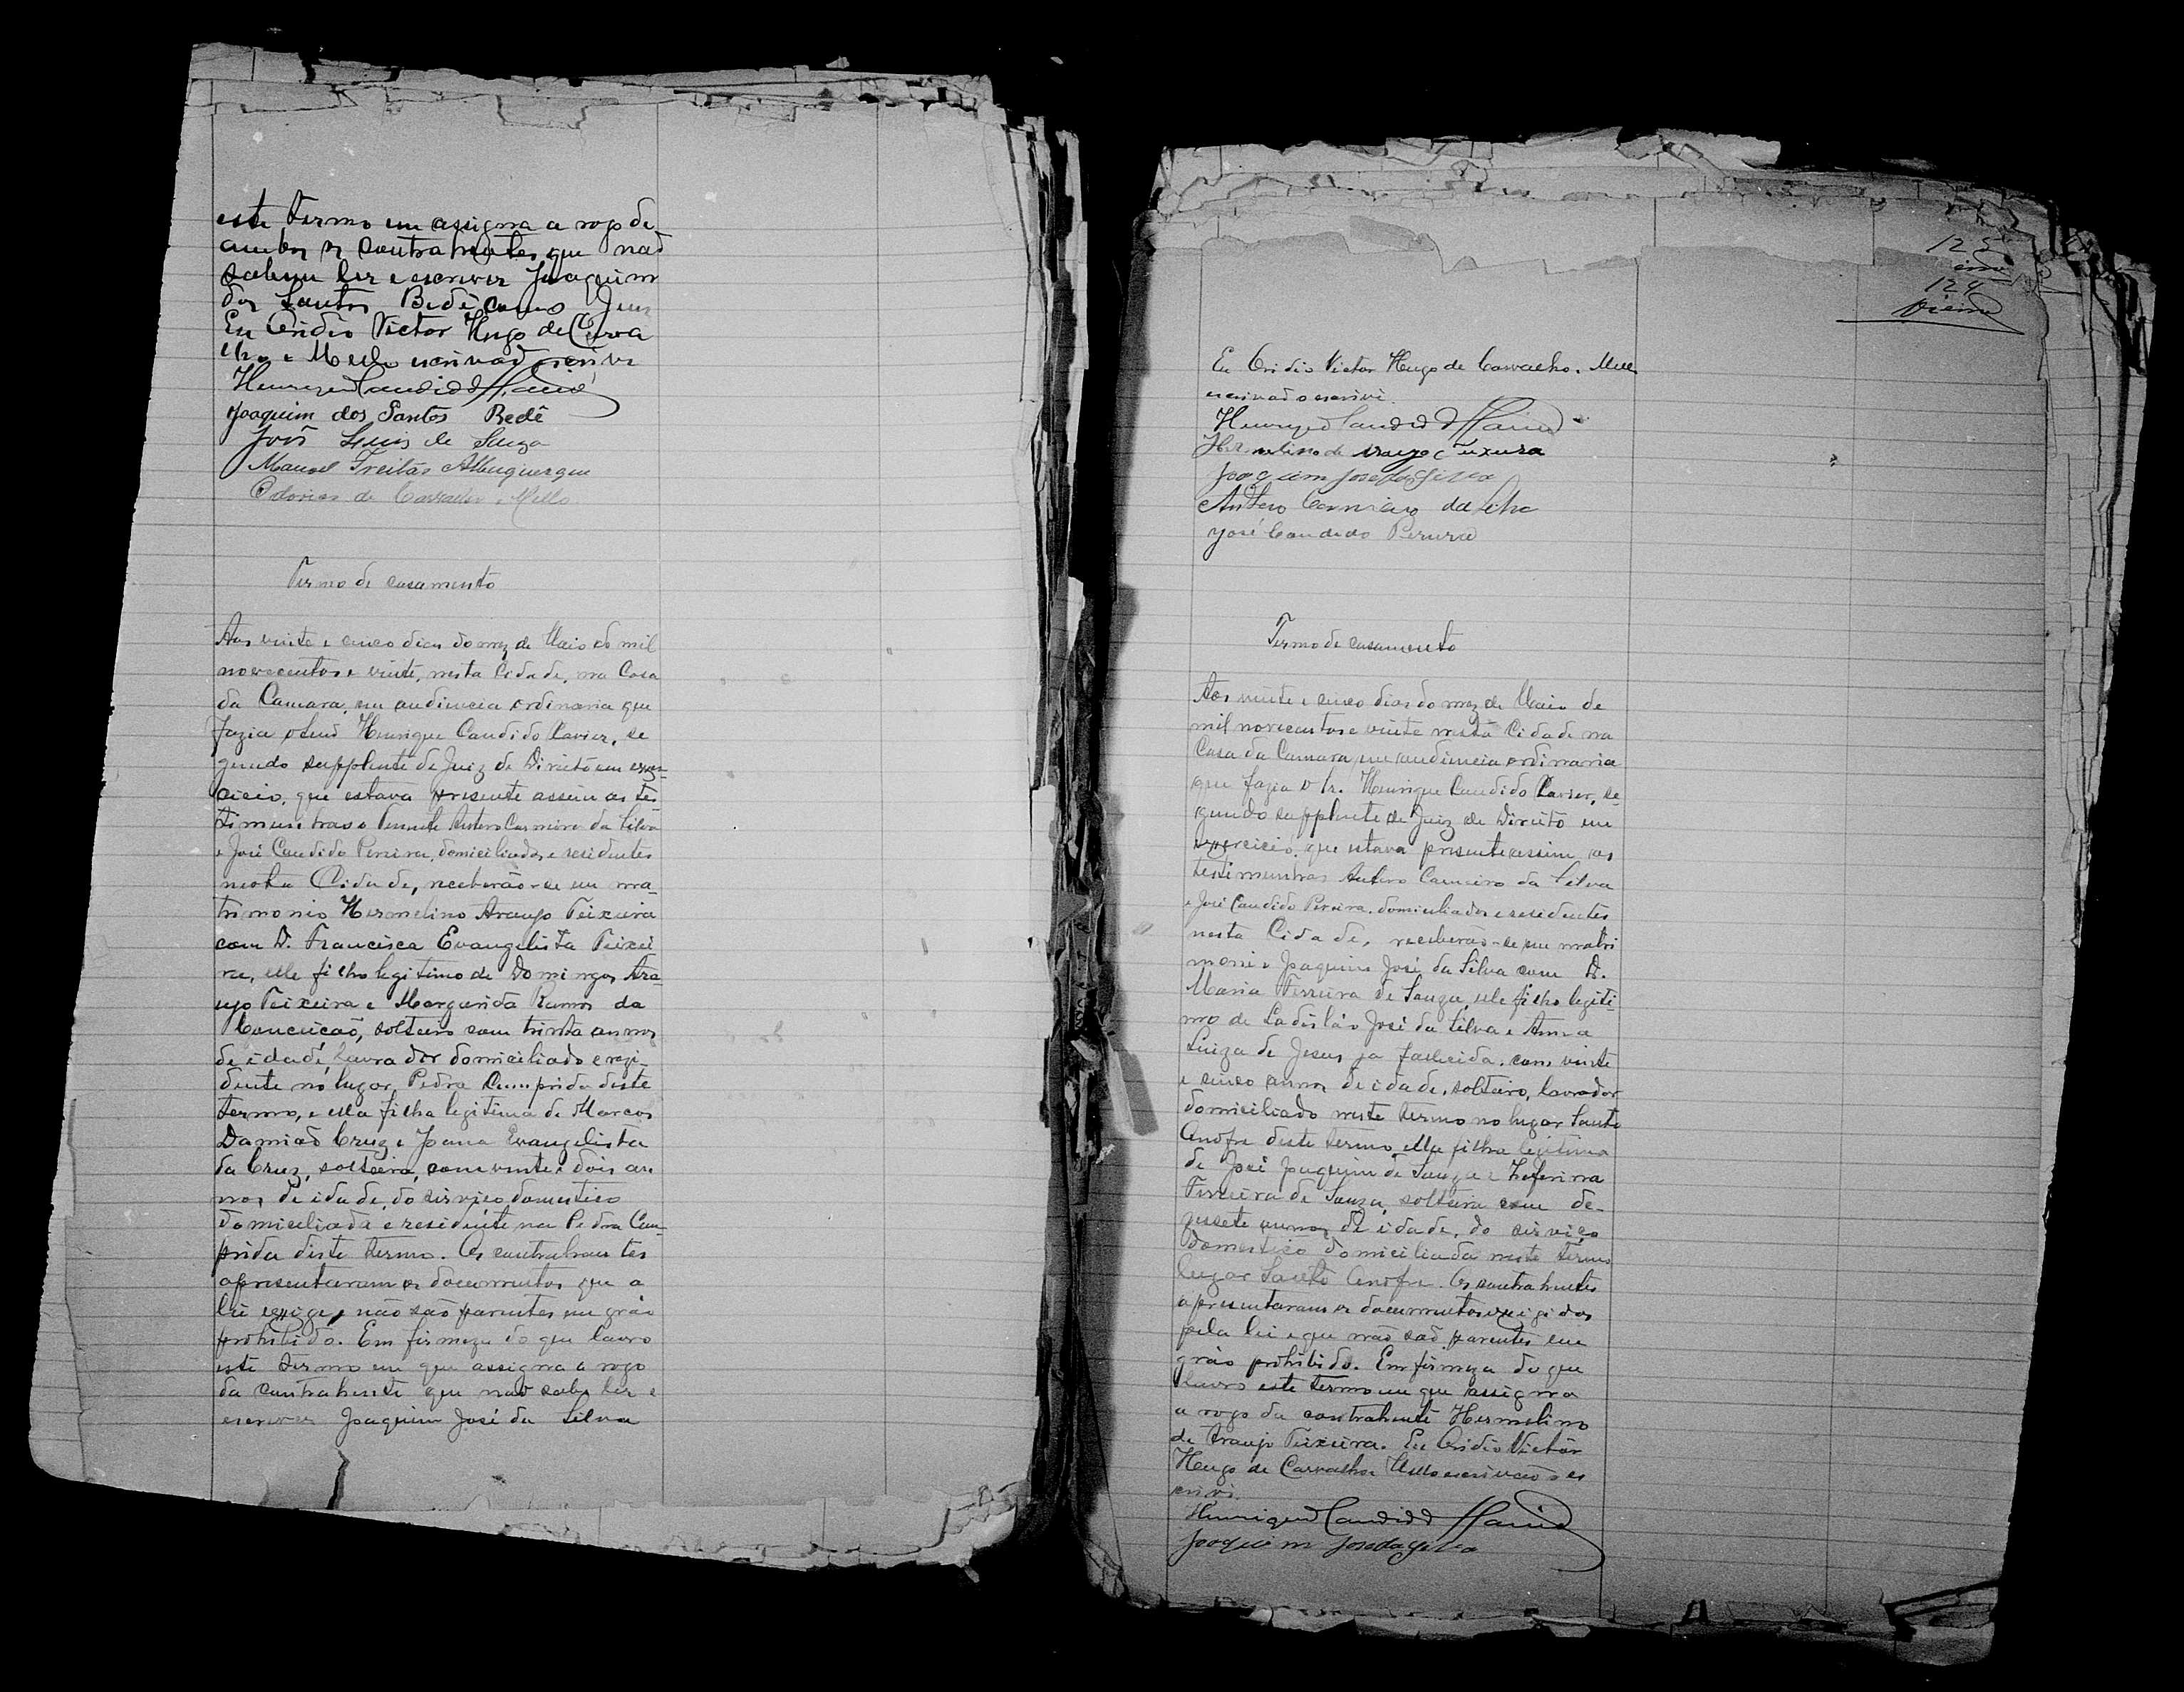 este termo em assigna a rogo de
ambos os contrahentes que não
sabem ler e escrever Joaquim
dos Santos Bedê como
Eu Ovidio Victor Hugo de Carva
lho e Mello escrivão escrivi
Henrique Candido Xavier
Joaquim dos Santos Bedê
João Luis de Souza
Manoel Freitas Albuquerque
de Carvalho e Mello
Termo de casamento
Aos vinte e cinco dias do mez de Maio do mil
novecentos e vinte, nesta Cidade, na Casa
da Camara, em audiencia ordinaria que
fazia o Henrique Candido Xavier, se
gundo supplente de Juiz de Direito em exer-
cicio, que estava presente assim as tes-
timunhas o Tenente Antero Carneiro da Silva
e José Candido Pereira, domiciliados e residentes
nesta Cidade, receberão-se em ma-
trimonio Hermelino Araujo Teixeira
com D. Francisca Evangelista Teixei
ra, elle filho legitimo de Domingos Ara-
ujo Teixeira e Margarida Ramos da
Conceição, solteiro com trinta annos
de idade, lavrador domiciliado e rezi-
dente no lugar Pedra Cumprida deste
termo, e ella filha legitima de Marcos
Damião Cruz e Joana Evangelista
da Cruz, solteira, com vinte e dois an
nos de idade, do serviço domestico
domiciliada e residente na Pedra Cum-
prida deste termo. Os contrahentes
apresentaram os documentos que a
lei exige, e não são parentes em gráo
prohibido. Em firmeza do que lavro
este termo em que assigna a rogo
da contrahente que não sabe ler e
escrever Joaquim José da Silva
125
124
Eu Ovidio Victor Hugo de Carvalho e Mello
escrivão escrivi.
Henrique Candido Xavier
Hermelino de Araujo Teixeira
Joaquim José da Silva
Antero Carneiro da Silva
José Candido Pereira
Termo de casamento
Aos vinte e cinco dias do mez de Maio de
mil novecentos e vinte nesta Cidade na
Casa da Camara, em audiencia ordinaria
que fazia o Sr. Henrique Candido Xavier, se-
gundo supplente de Juiz de Direito em
exercicio, que estava presente assim as
testimunhas Antero Carneiro da Silva
e José Candido Pereira, domiciliados e residentes
nesta Cidade, receberão-se em matri
monio Joaquim José da Silva com D.
Maria Ferreira de Souza, elle filho legiti-
mo de Ladisláo José da Silva e Anna
Luiza de Jesus ja fallecida, com vinte
e cinco annos de idade, solteiro, lavrador
domiciliado neste termo no lugar Santo
Onofre deste termo, ella filha legitima
de José Joaquim de Souza e Zeferina
Ferreira de Souza, solteira com de-
zesete annos de idade, do serviço
domestico domiciliada neste termo
lugar Santo Onofre. Os contrahentes
apresentaram os documentos exigidos
pela lei e que não são parentes em
gráo prohibido. Em firmeza do que
lavro este termo em que assigna
a rogo da contrahente Hermelino
de Araujo Teixeira. Eu Ovidio Victor
Hugo de Carvalho e Mello escrivão es
crivi.
Henrique Candido Xavier
Joaquim José da Silva